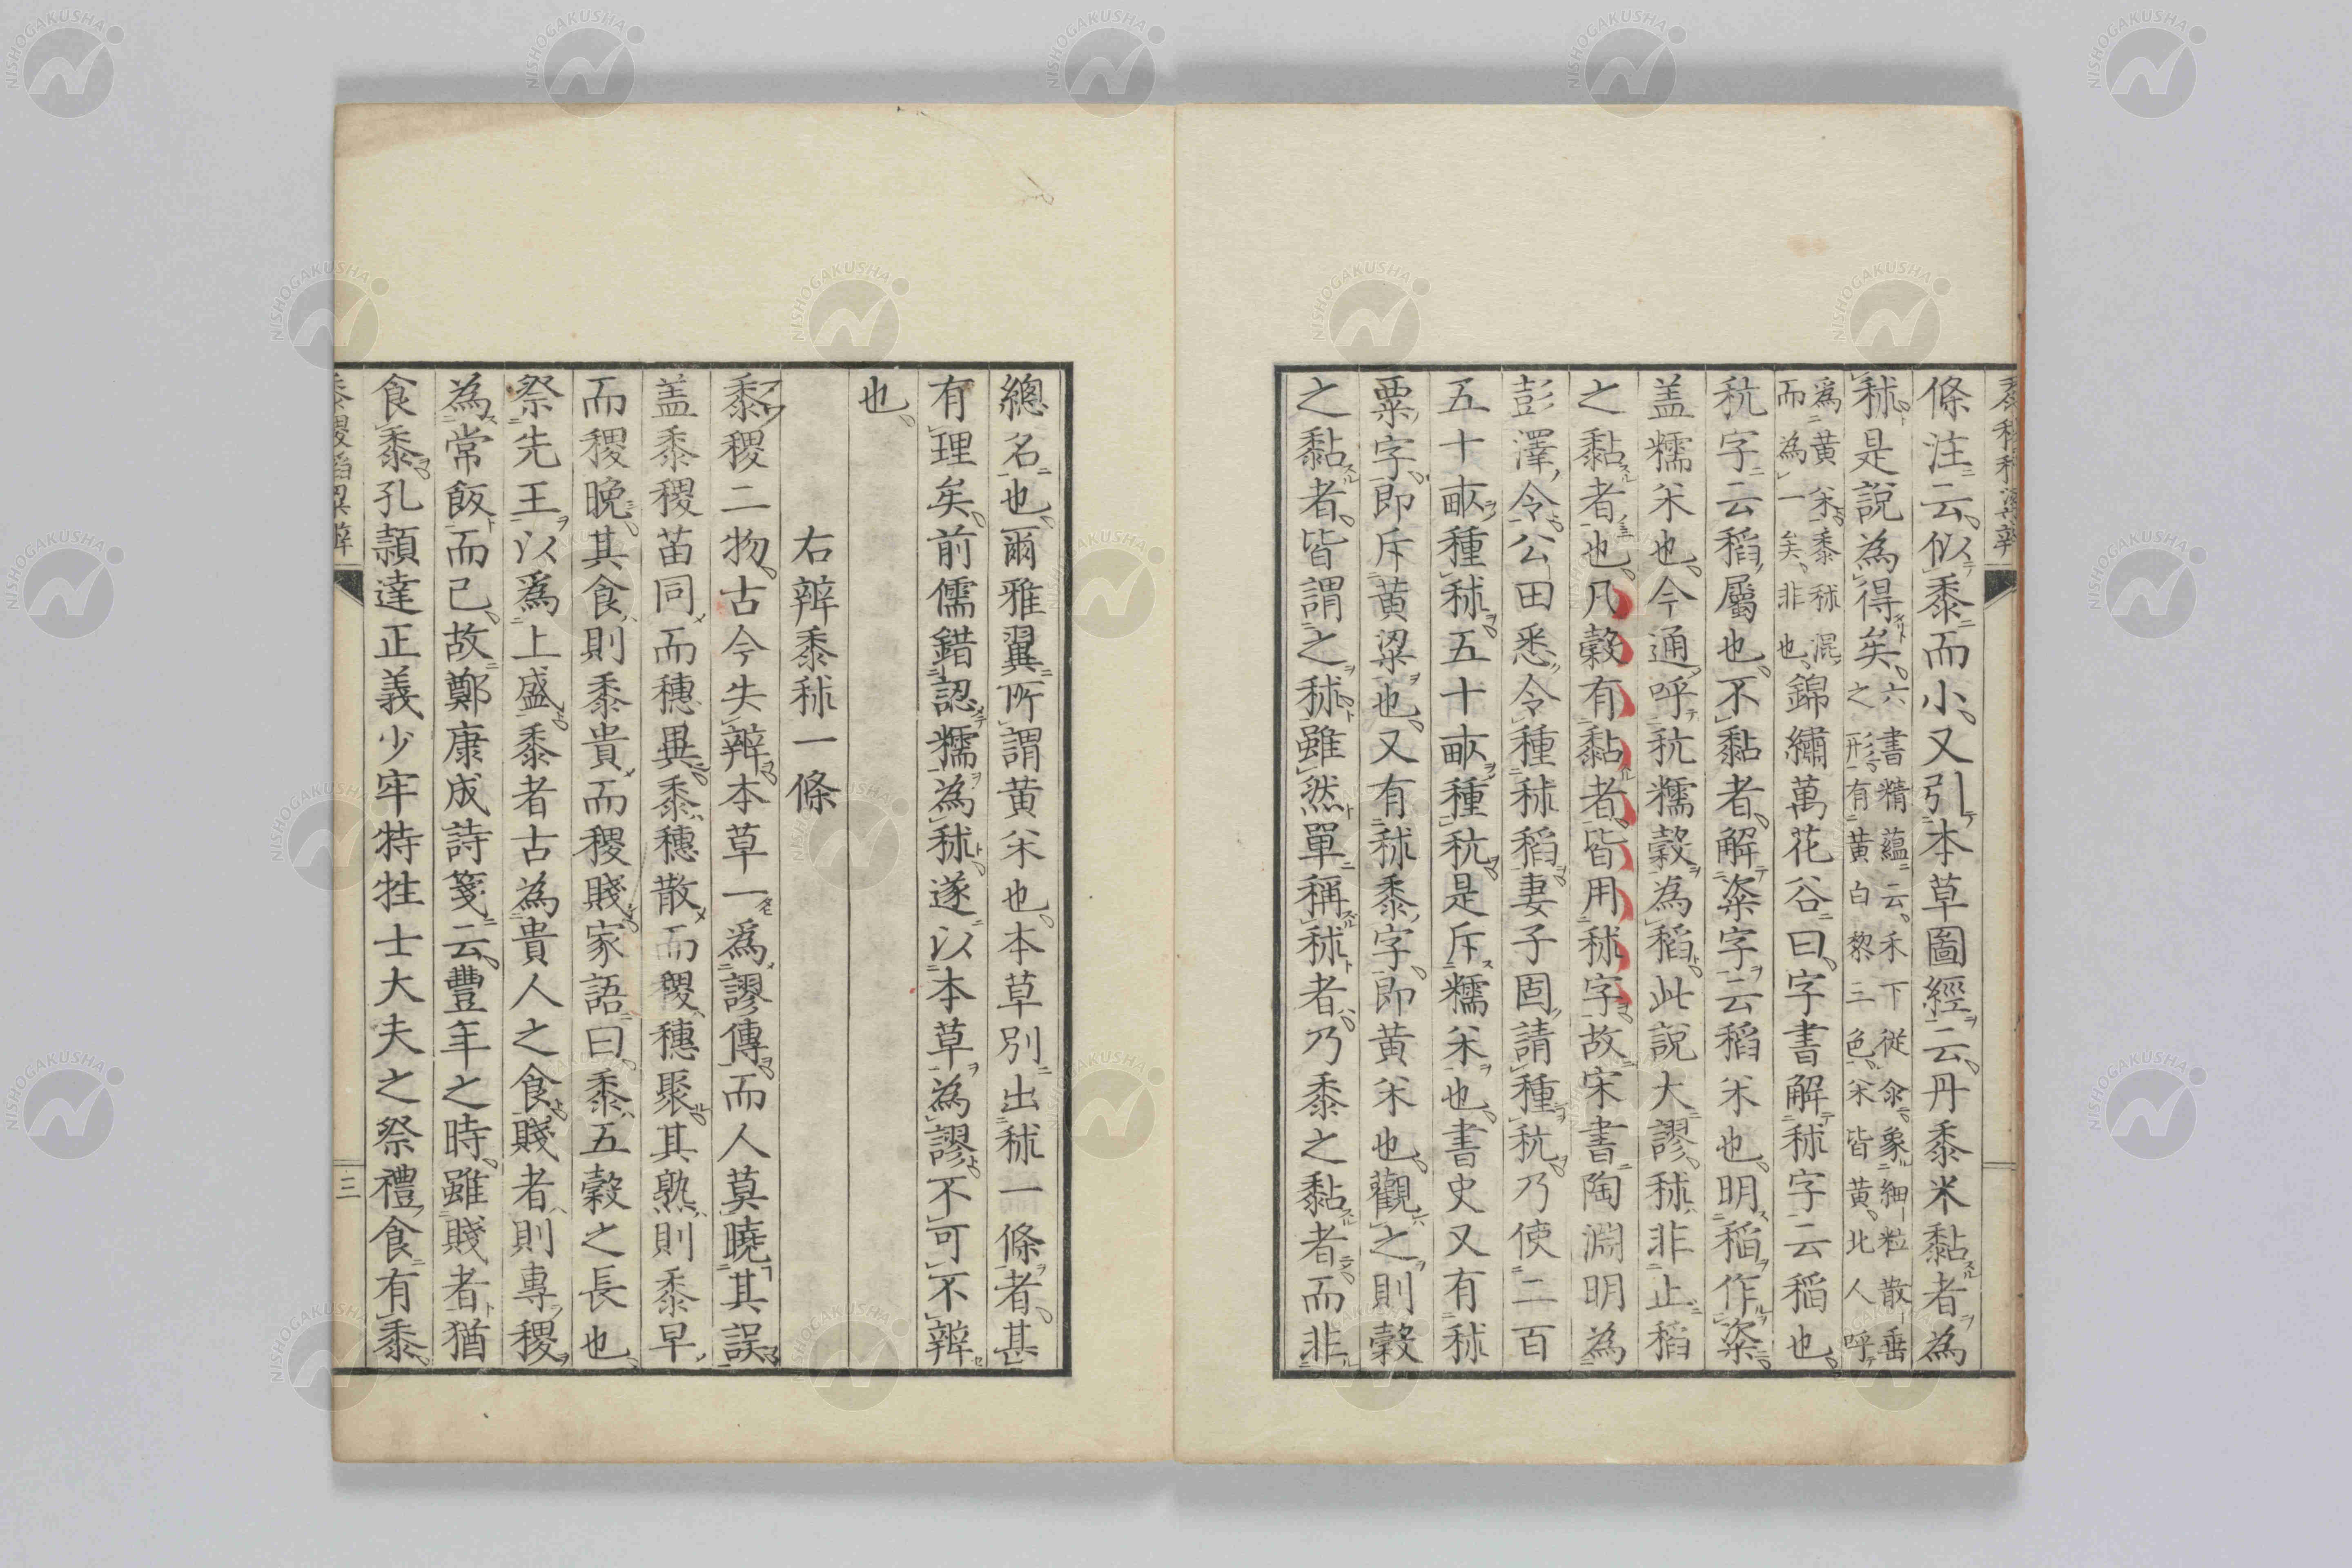 條注云似黍而小又引本草圖經云丹黍米黏者為
秫是說為得矣六書精蘊云禾下從氽象細粒散垂
之形有黄白黎三色米皆黄北人呼
為黄米黍秫混
而為一矣非也錦繡萬花谷曰字書解秫字云稻也
秔字云稻屬也不黏者解粢字云稻米也明稻作粢
盖糯米也今通呼秔糯穀為稻此說大謬秫非止稻
之黏者也凡穀有黏者皆用秫字故宋書陶淵明為
彭澤令公田悉令種秫稻妻子固請種秔乃使二百
五十畝種秫五十畝種秔是斥糯米也書史又有秫
粟字即斥黄粱也又有秫黍字即黄米也觀之則穀
之黏者皆謂之秫雖然單稱秫者乃黍之黏者而非
總名也爾雅翼所謂黄米也本草別出秫一條者甚
有理矣前儒錯認糯為秫遂以本草為謬不可不辨
也
右辨黍秫一條
黍稷二物古今失辨本草一為謬傳而人莫曉其誤
盖黍稷苗同而穗異黍穗散而稷穗聚其熟則黍早
而稷晚其食則黍貴而稷賤家語曰黍五穀之長也
祭先王以爲上盛黍者古為貴人之食賤者則專稷
為常飯而已故鄭康成詩箋云豐年之時雖賤者猶
食黍孔頴達正義少牢特牲士大夫之祭禮食有黍
黍稷稻粱辨
三
NISHOGAKUSHA